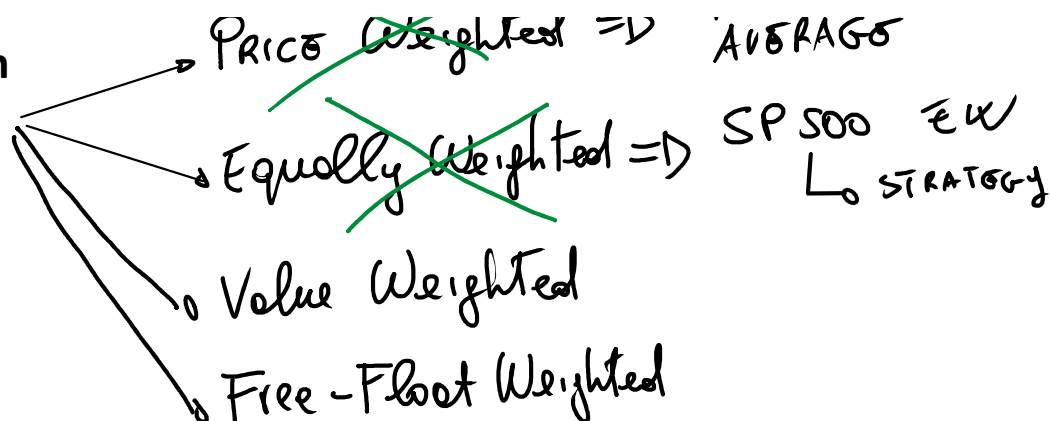 n
PRICE Weighted => AVERAGE
Equally Weighted => SP 500 EW
STRATEGY
Value Weighted
Free-Float Weighted